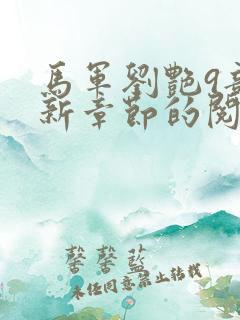 馬軍劉艷9章
新章節的閱
馨馨藍
未任同意禁止转載